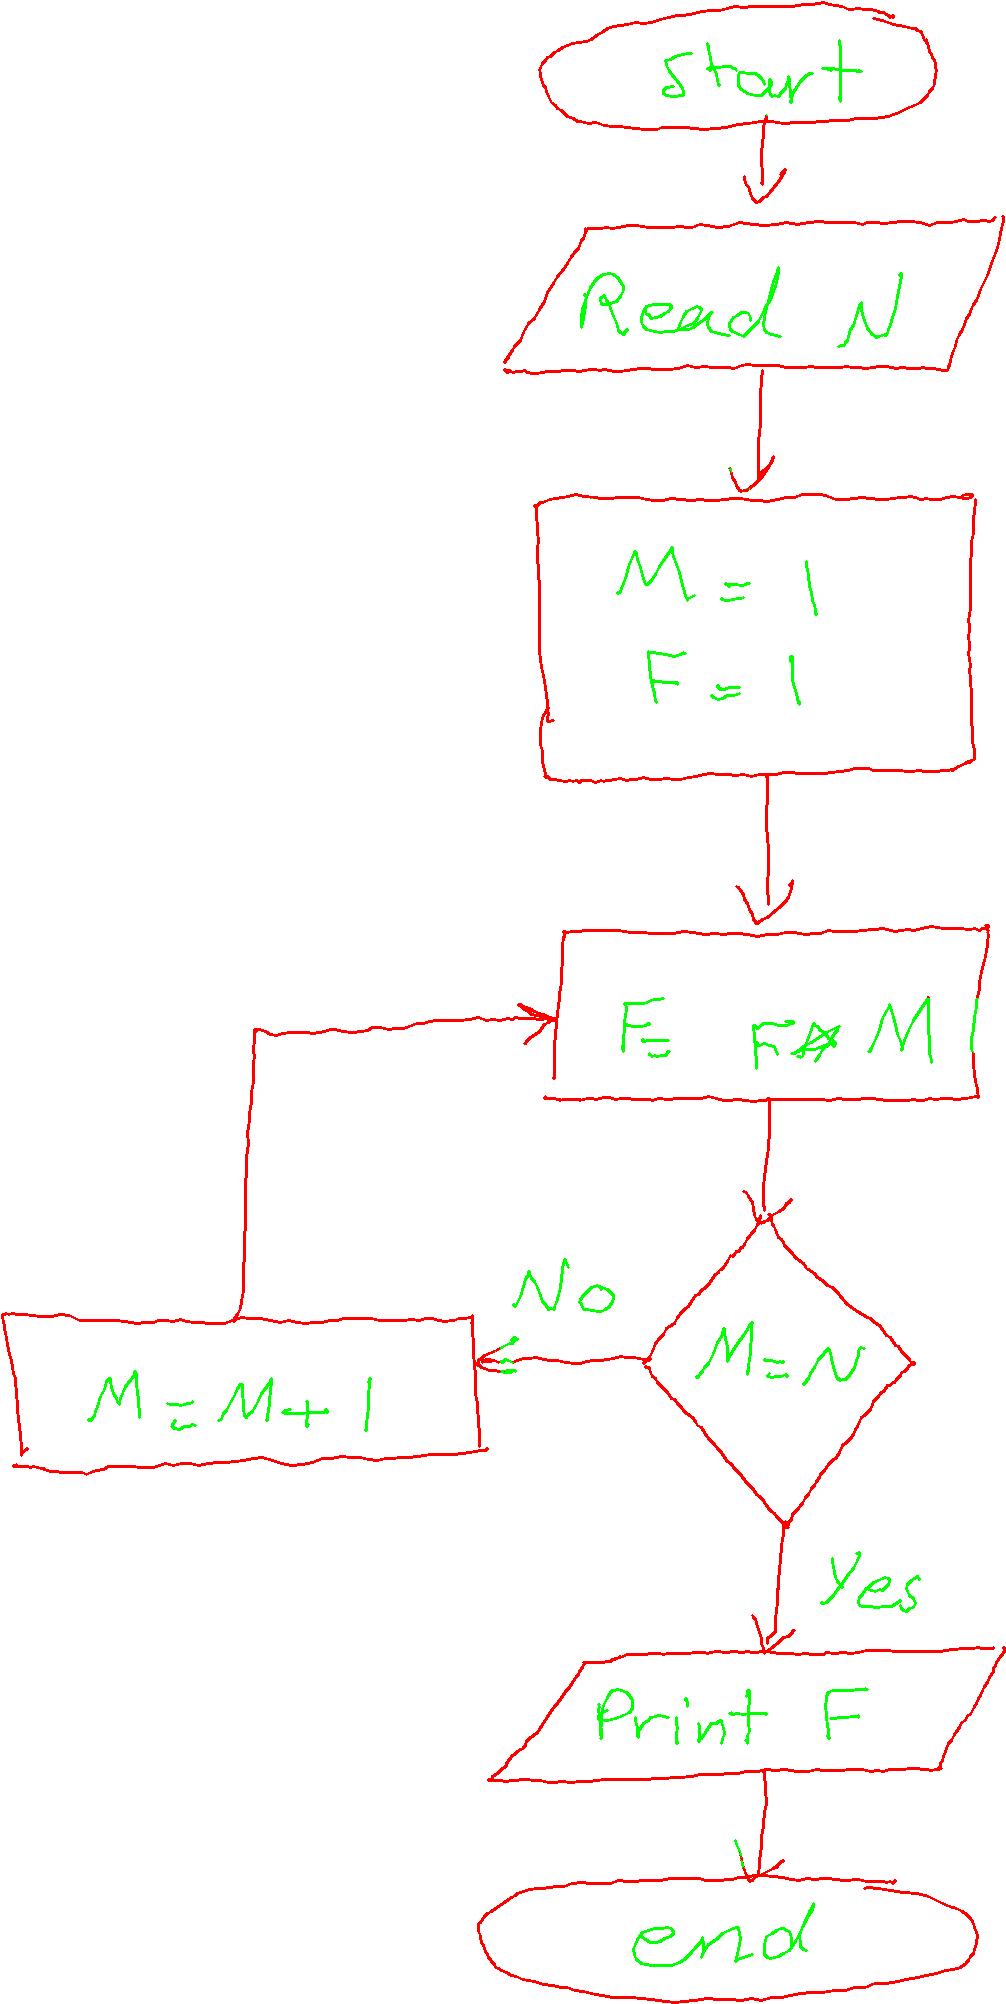 Start
Read N
M = 1
F = 1
F = F * M
No
M = N
M = M + 1
Yes
Print F
end